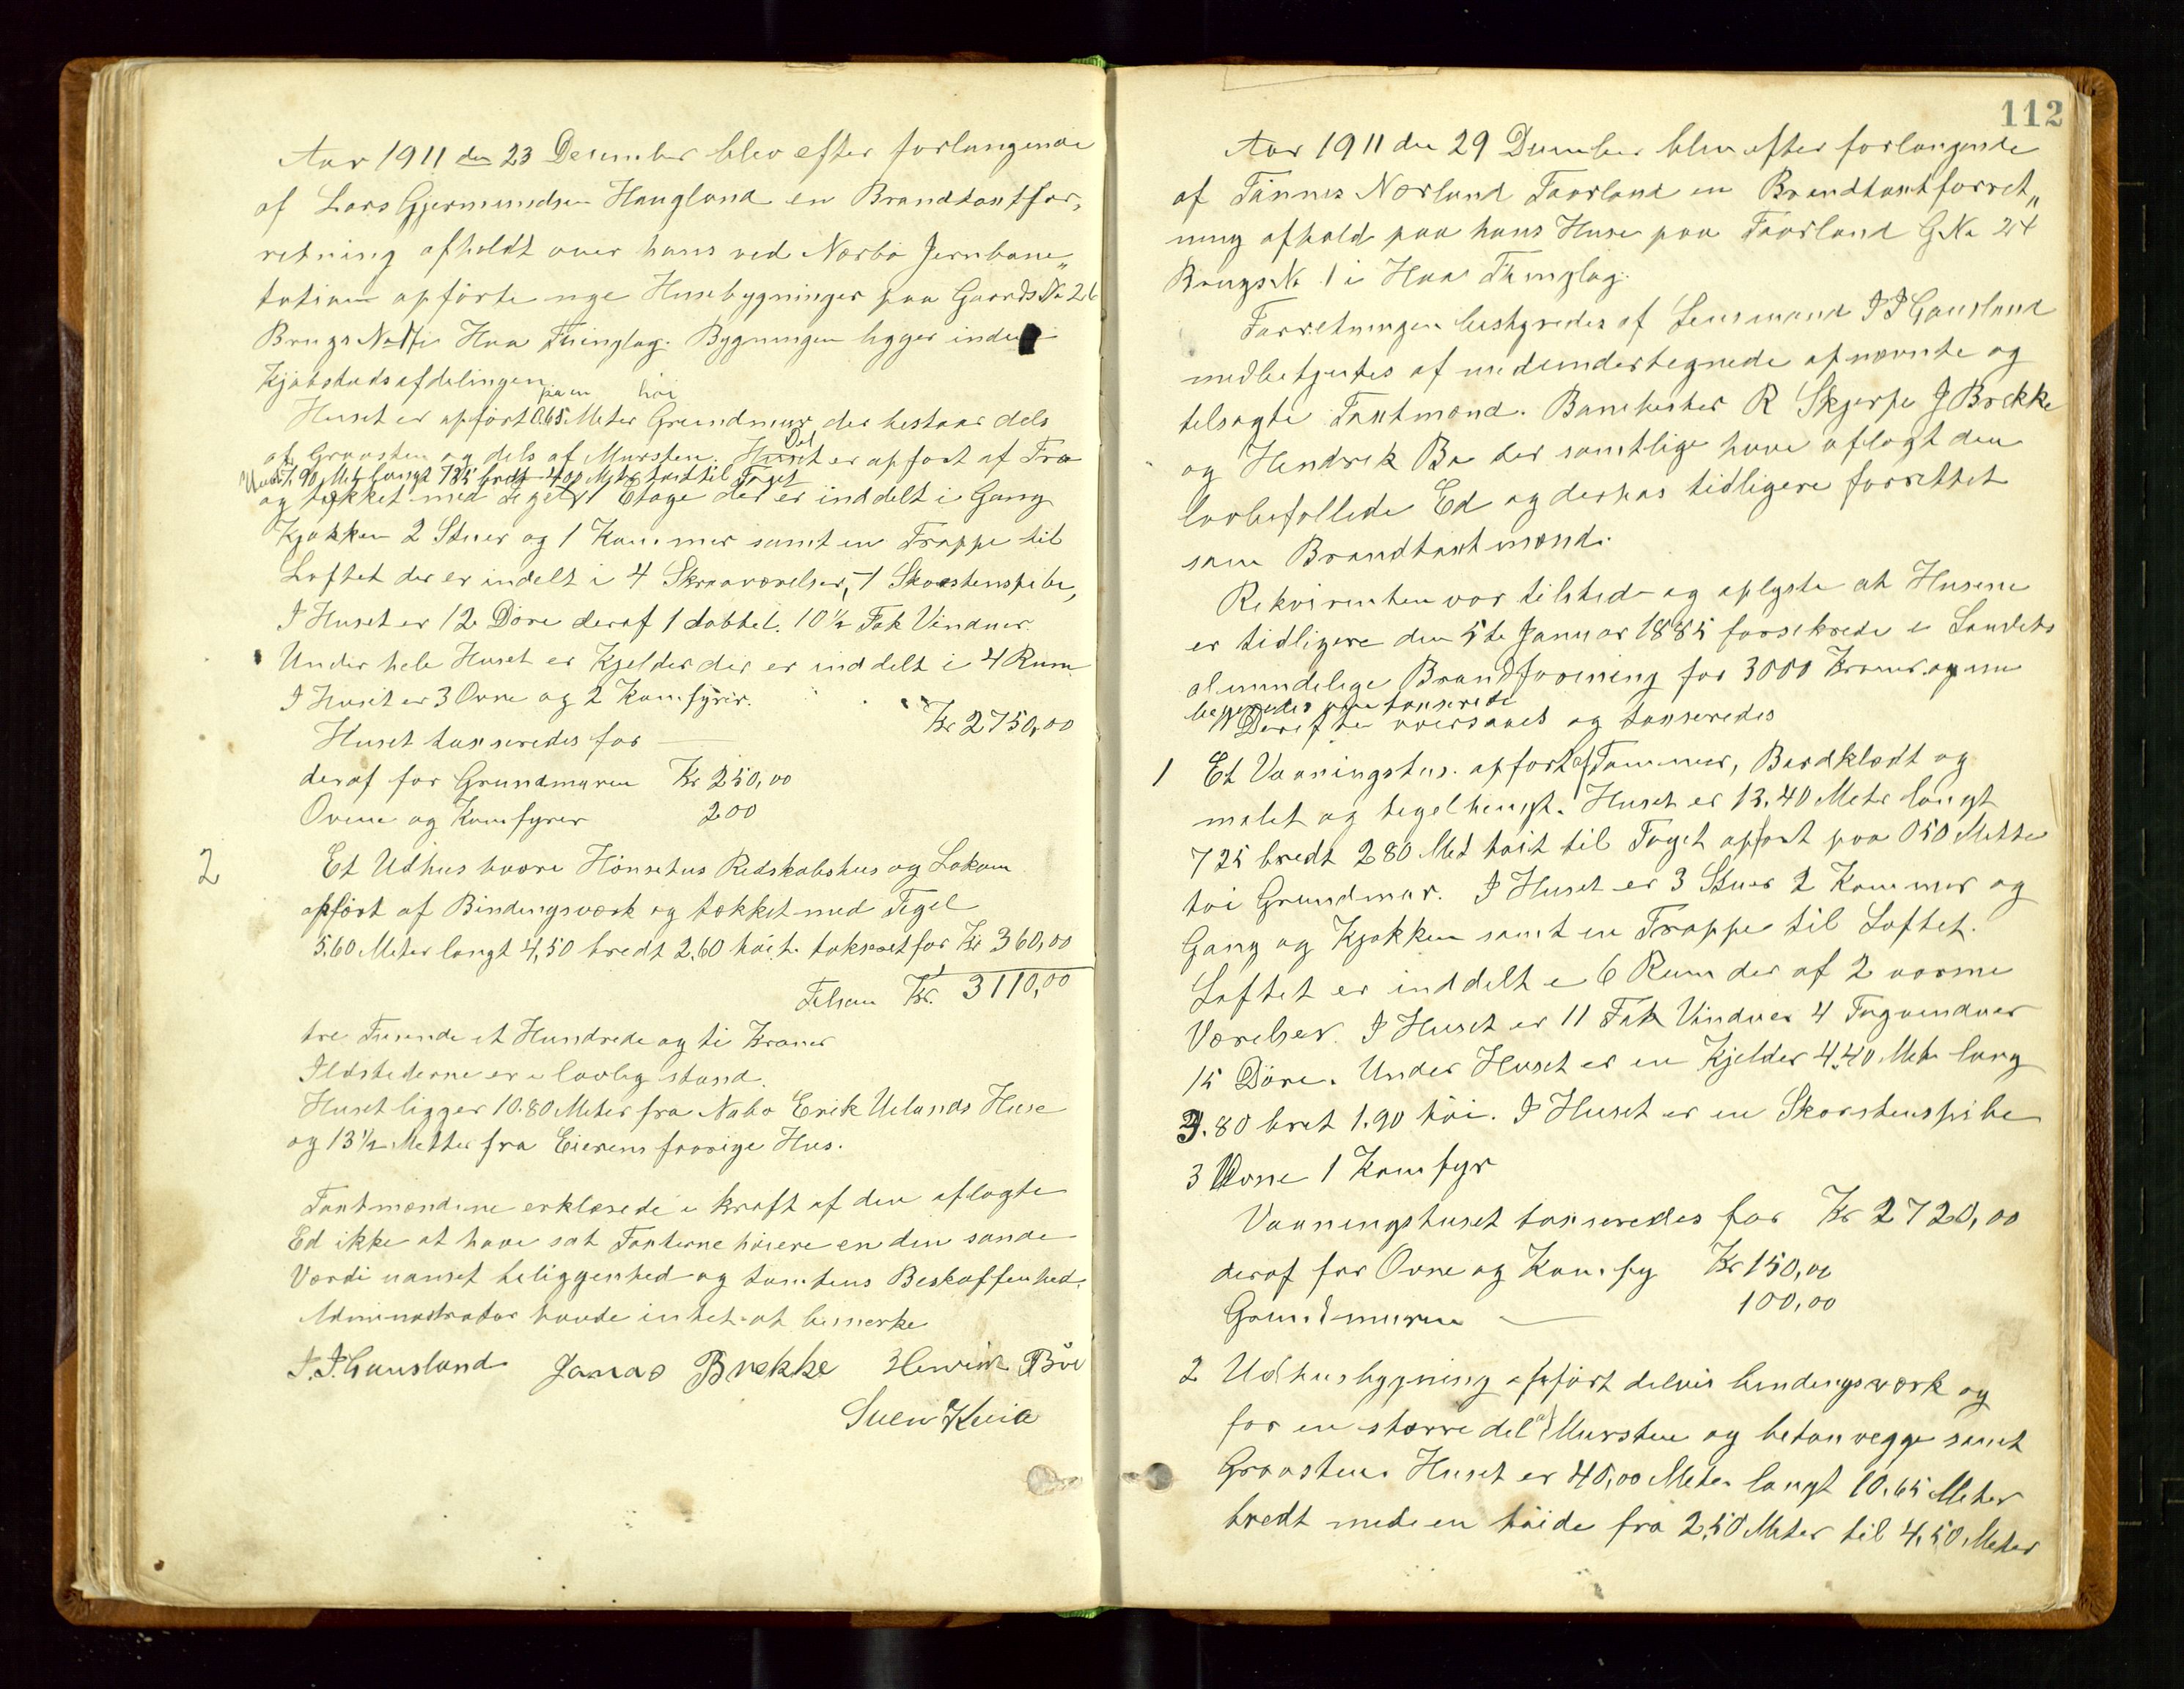 Aar 1911 den 23 Desember blev efter forlangende
af Lars Gjermundsen Haugland en Brandtaxtfor„
retning afholdt over hans ved Nærbö Jernbane„
station opförte nye Husebygninger paa Gaards No 26
Brugs No i Haa Thinglag. Bygningen ligger inden i
Kjöbstadsafdelingen
paa en höi
Huset er opfört 0,65 Meter Grundmur der bestaar dels
af Graasten og dels af Mursten. Det er opfört af Træ
Huset 7,90 Met langt 725 bredt 400 Meter höit til Taget
og tækket med Tegel, 1 Etage der er inddelt i Gang
Kjøkken 2 Stuer og 1 Kammer samt en Trappe til
Loftet der er indelt i 4 Skraaværelser, 1 Skorstenspibe,
I Huset er 12 Döre deraf 1 dobbel. 10½ Fak Vinduer.
Under hele Huset er Kjelder der er inddelt i 4 Rum
I Huset er 3 Ovne og 2 Komfyrer.
Huset taxseredes for Kr 2750,00
deraf for Grundmuren Kr 250,00
Ovne og Komfyrer 200
2 Et Udhus Hönsehus Redskabshus og Lokum
opfört af Bindingsværk og tækket med Tegel
5.60 Meter langt 4,50 bredt 2.60 höit takseret for Kr 360,00
Tilsam Kr. 3110,00
tre Tusende et Hundrede og ti Kroner
Ildstederne er i lovlig stand.
Huset ligger 10.80 Meter fra Nabo Erik Uelands Huse
og 13½ Metter fra Eierens forrige Hus.
Taxtmændene erklærede i kraft af den aflagte
Ed ikke at have sat Taxterne höiere en den sande
Værdi uanset beliggenhed og tomtens Beskaffenhed.
Administrator havde intet at bemerke
J. J. Gausland Jonas Brekke Henrik Böe
Sven Kvia
112
Aar 1911 den 29 Desember blev efter forlangende
af Tönnes Nærland Taarland en Brandtaxtforret„
ning afhold paa hans Huse paa Taarland G No 24
Brugs No 1 i Haa Thinglag.
Forretningen bestyredes af Lensmand J J Gausland
medbetjentes af medundertegnede opnævnte og
tilsagte Taxtmænd. R Skjerpe J Brekke
og Hendrik Bø der samtlige have aflagt den
lovbefallede Ed og derhos tidligere forrettet
som Brandtaxtmænd.
Rekvirenten var tilstede og oplyste at Husene
er tidligere den 5te Januar 1885 forsikrede i Landets
almindelige Brandforening for 3000 Kroner og nu
begjeredes taxserede
Derefter oversaaes og taxseredes
1 Et Vaaningshus. opfört af Tømmer, Bordklædt og
malet og tegelhengt. Huset er 13.40 Meter langt
725 bredt 280 Met höit til Taget opfört paa 050 Metter
höi Grundmur. I Huset er 3 Stuer 2 Kammer og
Gang og Kjøkken samt en Trappe til Loftet.
Loftet er inddelt i 6 Rum der af 2 varme
Værelser. I Huset er 11 Fak Vinduer 4 Tagvinduer
15 Döre. Under Huset er en Kjelder 4.40 Meter lang
3.80 bret 1.90 höi. I Huset er en Skorstenspibe
3 Ovne 1 Komfyr
Vaaningshuset taxseredes for Kr 2720,00
deraf for Ovne og Komfy Kr 150,00
Grundmuren 100,00
2 Udhusbygning opfört delvis bindingsværk og
for en større del af Mursten og betonvegge samt
Graasten. Huset er 40,00 Meter langt 10.65 Meter
bredt mede en höide fra 2,50 Meter til 4,50 Meter